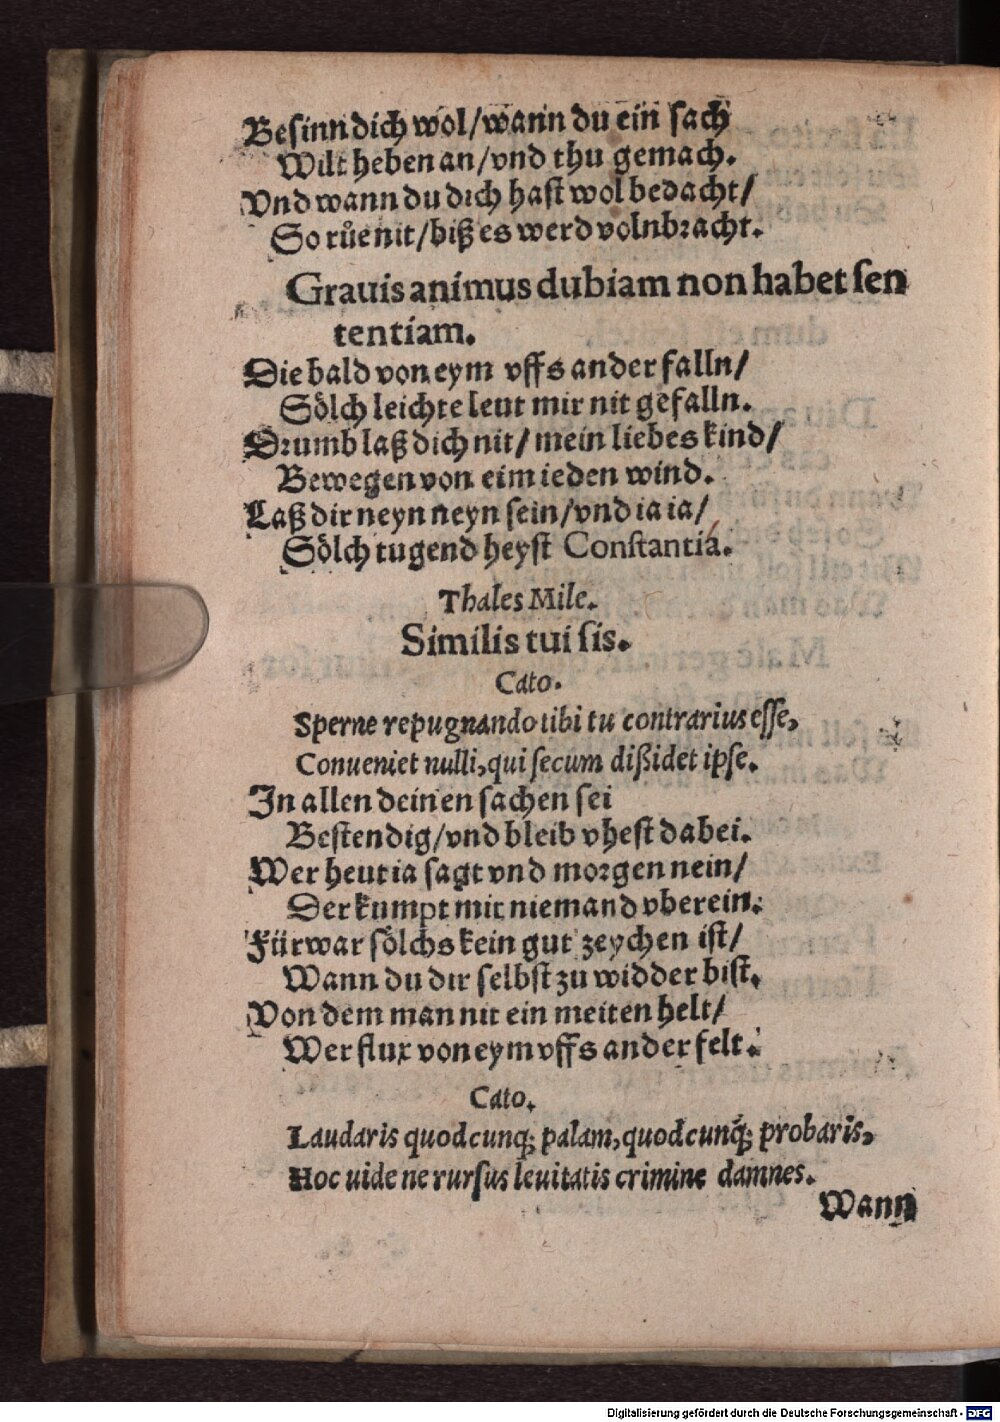 Besinn dich wol/wann du ein sach
Wilt heben an/vnd thu gemach.
Vnd wann du dich hast wol bedacht/
So růe nit/biß es werd volnbracht.
Grauis animus dubiam non habet sen
tentiam.
Die bald von eym vffs ander falln/
Sölch leichte leut mir nit gefalln.
Drumb laß dich nit/mein liebes kind/
Bewegen von eim ieden wind.
Laß dir neyn neyn sein/vnd ia ia/
Sölch tugend heyst Constantia.
Thales Mile.
Similis tui sis.
Cato.
Sperne repugnando tibi tu contrarius esse,
Conueniet nulli, qui secum dißidet ipse.
In allen deinen sachen sei
Bestendig/vnd bleib vhest dabei.
Wer heut ia sagt vnd morgen nein/
Der kumpt mit niemand vberein.
Fürwar sölchs kein gut zeychen ist/
Wann du dir selbst zu widder bist.
Von dem man nit ein meiten helt/
Wer flux von eym vffs ander felt.
Cato.
Laudaris quodcunq; palam, quodcunq́; probaris,
Hoc uide ne rursus leuitatis crimine damnes.
Wann
Digitalisierung gefördert durch die Deutsche Forschungsgemeinschaft - DFG